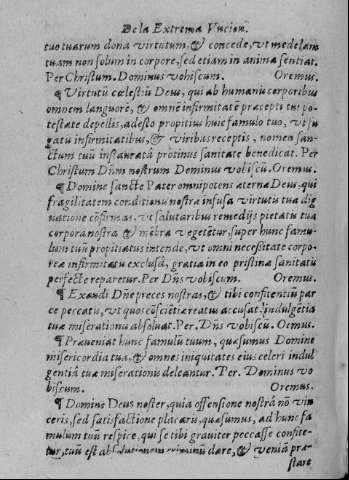 De la Extrema Vncion.
tuo tuarum dona virtutum, & concede, vt medelam
tuam non solum in corpore, sed etiam in anima sentiat.
Per Christum. Dominus vobiscum. Oremus.
¶ Virtutū cœlestiū Deus, qui ab humanis corporibus
omnem languorē, & omnē infirmitatē præcepti tui po-
testate depellis, adesto propitius huic famulo tuo, vt fu
gatis infirmitatibus, & viribus receptis, nomen san-
ctum tuū instaurata protinus sanitate benedicat. Per
Christum Dñm nostrum Dominus vobiscū. Oremus.
¶ Domine sancte Pater omnipotens æterne Deus, qui
fragilitatem conditionis nostræ infusa virtutis tuæ dig
natione cōfirmas, vt salutaribus remedijs pietatis tuæ
corpora nostra & mēbra vegetētur, super hunc famu-
lum tuū propitiatus intende, vt omni necessitate corpo-
reæ infirmitatis exclusa, gratia in eo pristinæ sanitatis
perfecte reparetur. Per Dñs vobiscum. Oremus.
¶ Exaudi Dñe preces nostras, & tibi confitentiū par
ce peccatis, vt quos cōsciētiæ reatus accusat, indulgētia
tuæ miserationis absoluat. Per. Dñs vobiscū. Oremus.
¶ Præueniat hunc famulum tuum, quæsumus Domine
misericordia tua, & omnes iniquitates eius celeri indul
gentia tuæ miserationis deleantur. Per. Dominus vo
biscum. Oremus.
¶ Domine Deus noster, quia offensione nostra nō vin
ceris, sed satisfactione placaris, quæsumus, ad hunc fa
mulum tuū respice, qui se tibi grauiter peccasse confite-
tur, tuū est absolutionem criminū dare, & veniā præ-
stare